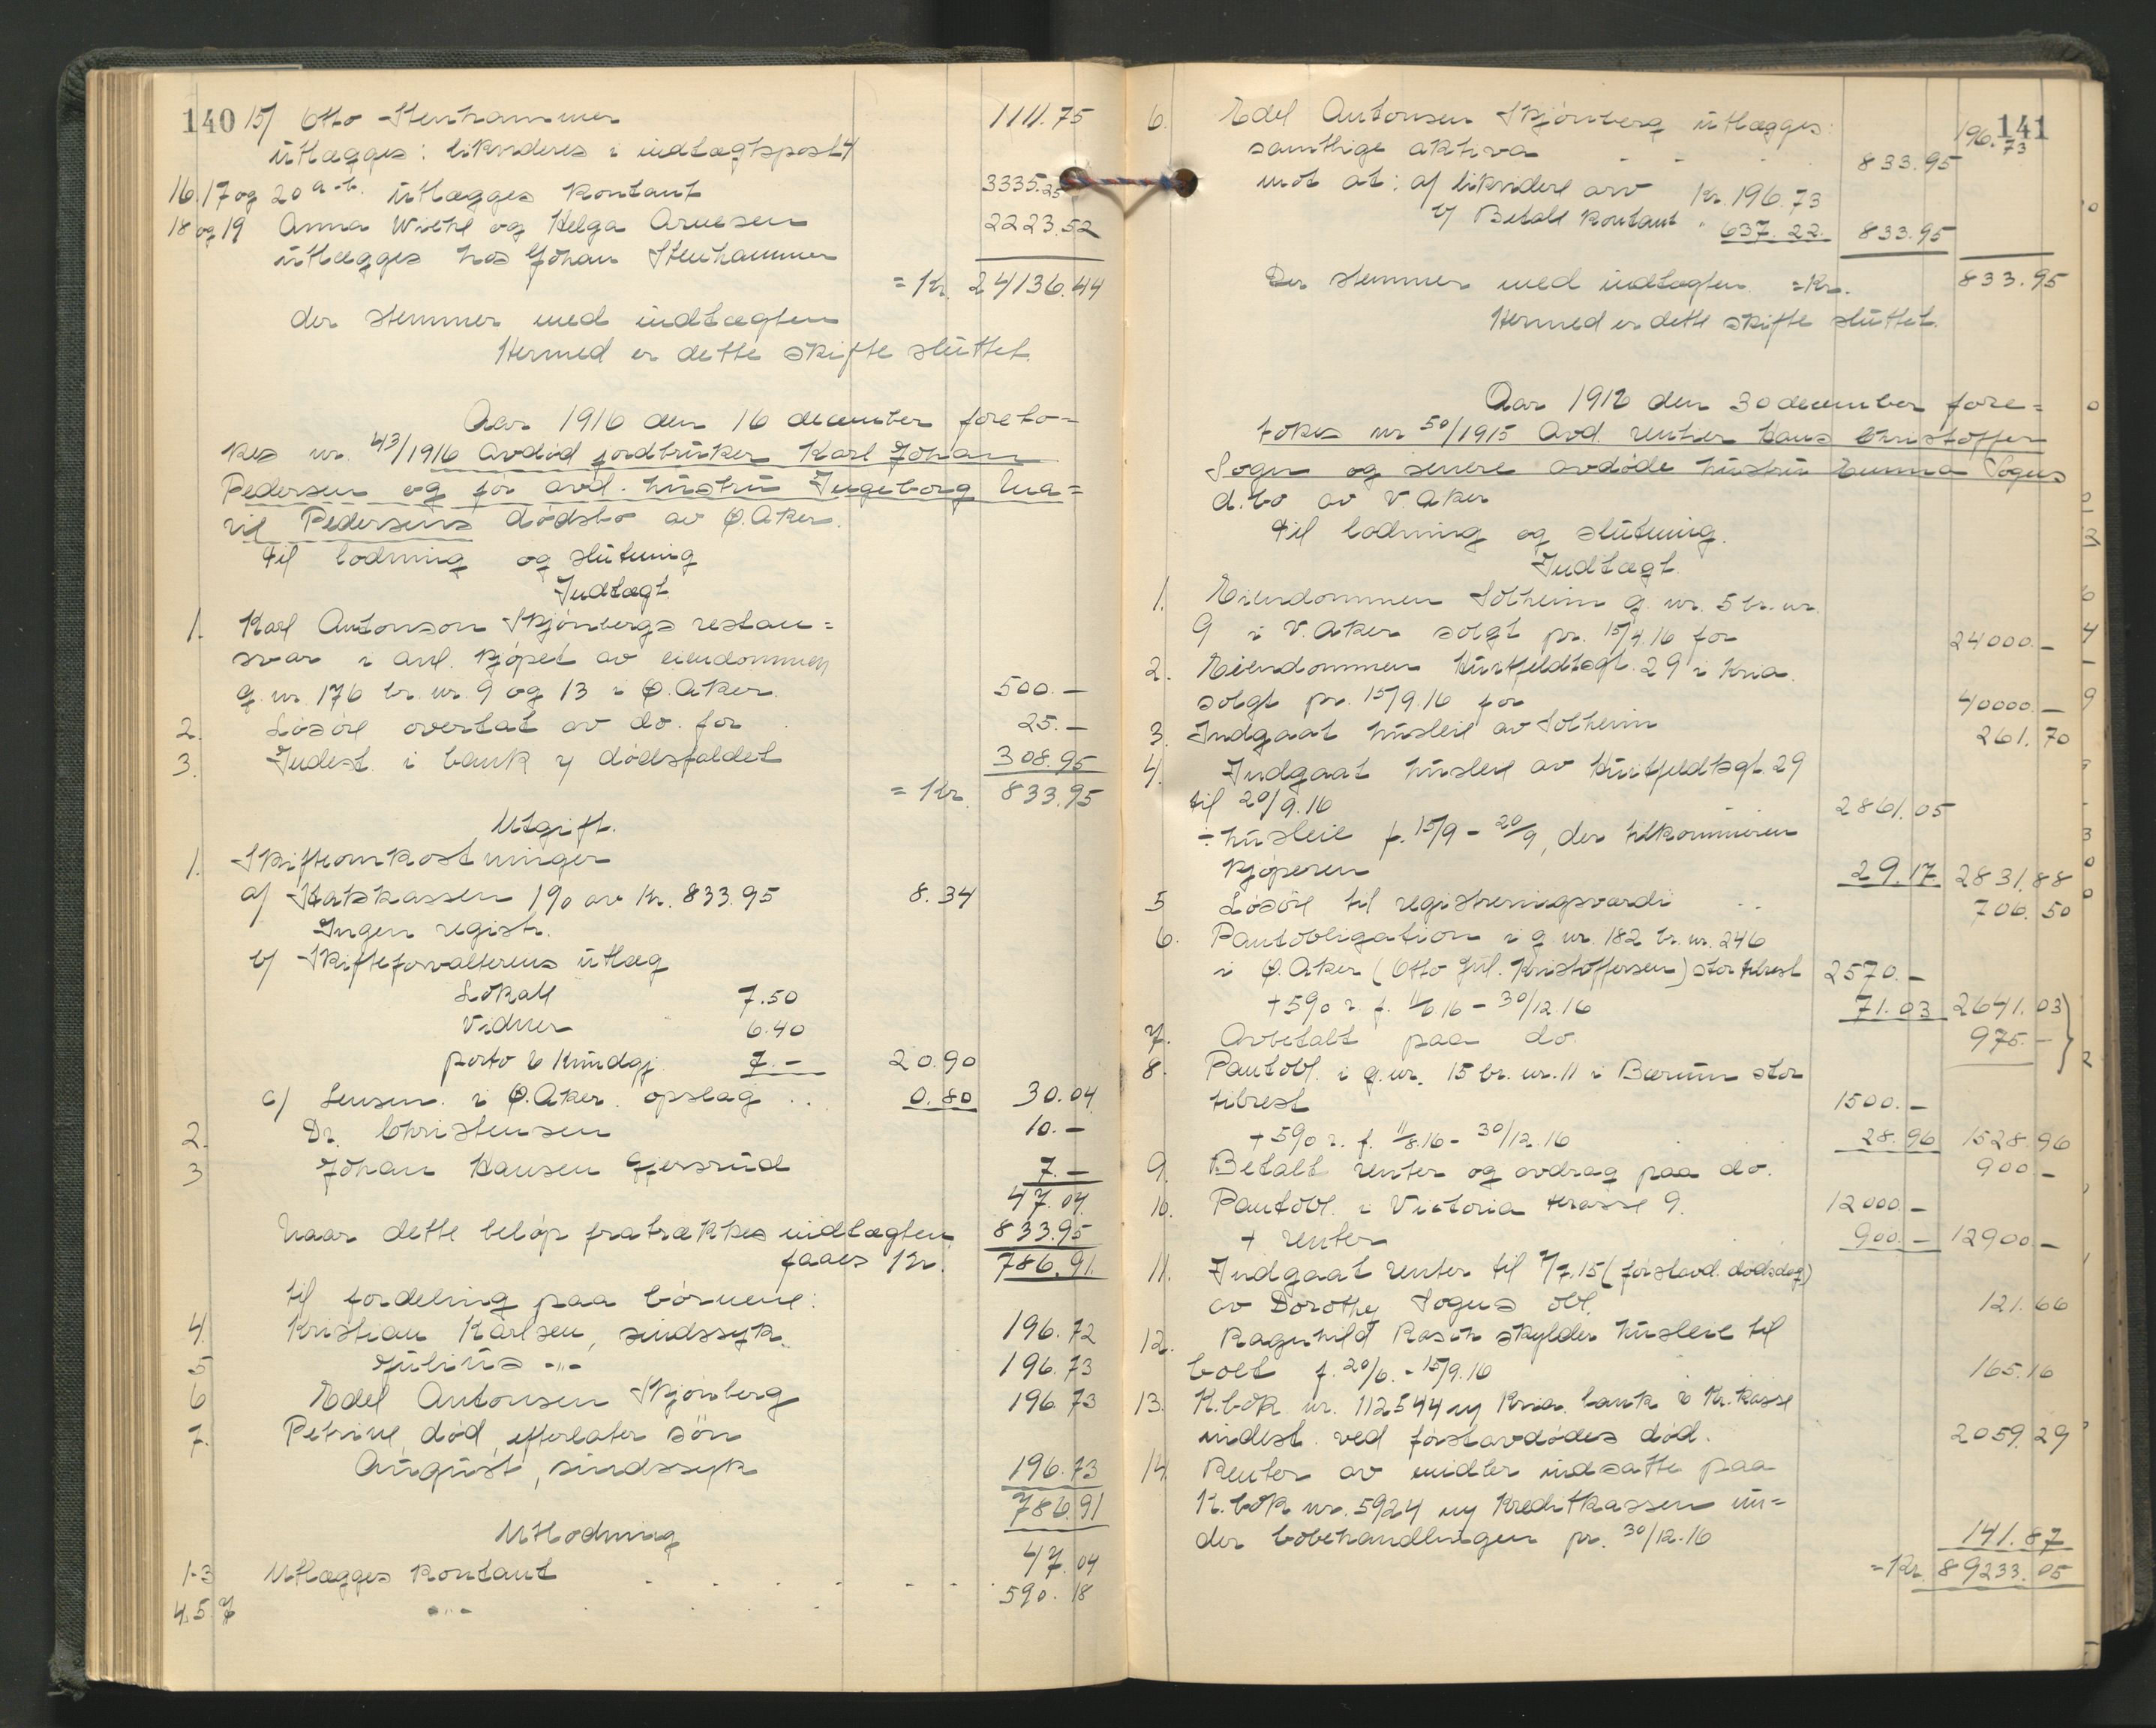 140
15/ Otto Stenhammer 1111.75
utlægges: likvideres i indtægtspost 4
16.17 og 20 a-b. utlægges kontant 3335.25
18 og 19 Anna Wiehl og Helga Arnesen 2223.52
utlægges hos Johan Stenhammer
= Kr. 24136.44
der stemmer med indtægten
Hermed er dette skifte sluttet.
Aar 1916 den 16 december foreto=
kes nr. 43/1916 avdød jordbruker Karl Johan
Pedersen og før avd. hustru Ingeborg Ma=
rie Pedersens dødsbo av Ø. Aker.
til lodning og slutning
Indtægt.
1. Karl Antonson Skjønbergs restan=
svar i anl. kjøpet av eiendommen
g. nr. 176 br. nr. 9 og 13 i Ø. Aker. 500.-
2. Løsøre overtat av do. for 25.-
3. Indest. i bank v/ dødsfaldet 308.95
= Kr. 833.95
Utgift.
1. Skifteomkostninger
a/ Statskassen 1% av Kr. 833.95 8.34
Ingen registr.
b/ Skifteforvalterens utlæg
Lokale 7.50
Vidner 6.40
porto & kundgj. 7.- 20.90
c/ Lensm. i Ø. Aker. opslag .. 0.80 30.04
2. Dr. Christensen 10.-
3 Johan Hansen Gjersrud 7.-
47.04
Naar dette beløp fratrækkes indtægten 833.95
faaes Kr. 786.91
til fordeling paa børnene:
4. Kristian Karlsen, sindssyk. 196.72
5 Julius -"- 196.73
6 Edel Antonsen Skjønberg 196.73
7. Petrine, død, efterlater søn
August, sindssyk 196.73
786.91
Utlodning
1-3 Utlægges kontant 47.04
4.5.7 -"- 590.18
141
6. Edel Antonsen Skjønberg utlægges: 196.73
samtlige aktiva - - 833.95
mot at: a/ likvidere arv Kr. 196.73
b/ Betale kontant " 637.22. 833.95
Der stemmer med indtægten =Kr. 833.95
Hermed er dette skifte sluttet.
Aar 1916 den 30 december fore=
tokes nr 50/1915 Avd. rentier Hans Christoffer
Sogn og senere avdøde hustru Emma Sogns
d.bo av V. Aker
til lodning og slutning.
Indtægt.
1. Eiendommen Solheim g. nr. 5 br. nr.
9 i V. Aker solgt pr. 15/9.16 for 24000.-
2. Eiendommen Huitfeldtsgt. 29 i Kria.
solgt pr. 15/9.16 for 40000.-
3. Indgaat husleie av Solheim 261.70
4. Indgaat husleie av Huitfeldtsgt. 29
til 20/9.16 2861.05
÷ husleie f. 15/9 - 20/9, der tilkommer
kjøperen 29.17 2831.88
5 Løsøre til registreringsværdi .. 706.50
6. Pantobligation i g. nr. 182 br. nr. 246
i Ø. Aker (Otto Jul. Kristoffersen) stor tilrest 2570.-
+ 5% r. f. 11/6 16 - 30/12.16 71.03 2641.03
7. Avbetalt paa do. 975.-
8. Pantobl. i g. nr. 15 br. nr. 11 i Bærum stor
tilrest 1500.-
+ 5% r. f. 11/8.16 - 30/12.16 28.96 1528.96
9. Betalt renter og avdrag paa do. 900.-
10. Pantobl. i Victoria terasse 9. 12000.-
+ renter 900.- 12900.-
11. Indgaat renter til 7/7.15 (førstavd. dødsdag)
av Dorothy Sogns obl. 121.66
12. Ragnhild Rasch skylder husleie til
boet f. 20/6. - 15/9.16 165.16
13. K.bok nr. 112544 i Kria. bank & Kr. kasse
indest. ved førstavdødes død. 2059.29
14 Renter av midler indsatte paa
K.bok nr. 5924 i Kreditkassen un=
der bobehandlingen pr. 30/12.16 141.87
=Kr. 89233.05